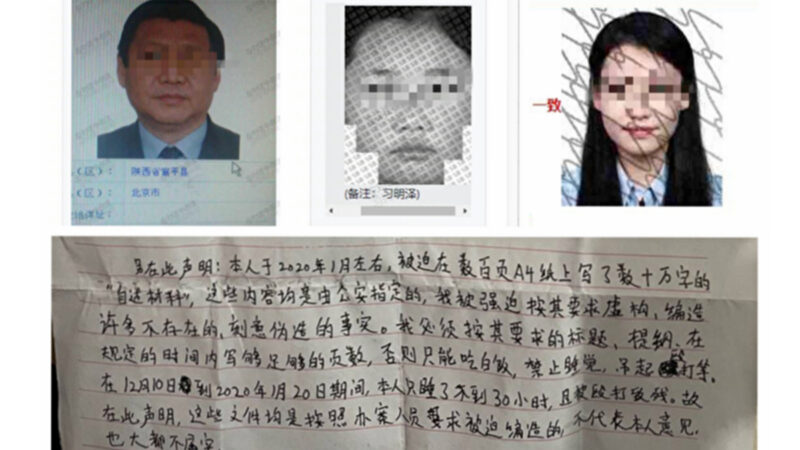 （区）：陕西省富平县
（区）：北京市
（备注：习明泽）
一致
另在此声明：本人于2020年1月左右，被迫在数百页A4纸上写了数十万字的
“自述材料”，这些内容均是由公安指定的，我被强迫按其要求虚构、编造
许多不存在的、刻意伪造的事实。我必须按其要求的标题、提纲、在
规定的时间内写够足够的页数，否则只能吃白饭，禁止睡觉，吊起殴打等。
在12月10日到2020年1月20日期间，本人只睡了不到30小时，且被殴打致残。故
在此声明，这些文件均是按照办案人员要求被迫编造的，不代表本人意见，
也大都不属实